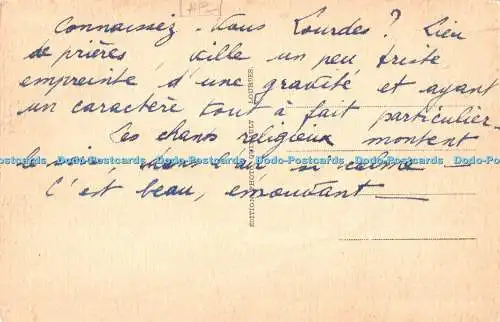 Connaissez-vous Lourdes? Lieu
de prières, ville un peu triste
empreinte d'une gravité et ayant
un caractère tout à fait particulier.
Les chants religieux montent
le soir, dans l'air si calme —
C'est beau, émouvant —
LOURDES.
Dodo-Postcards Dodo-Postcards Dodo-Postcards Dodo-Postcards Dodo-Postcards Dodo-Postcards